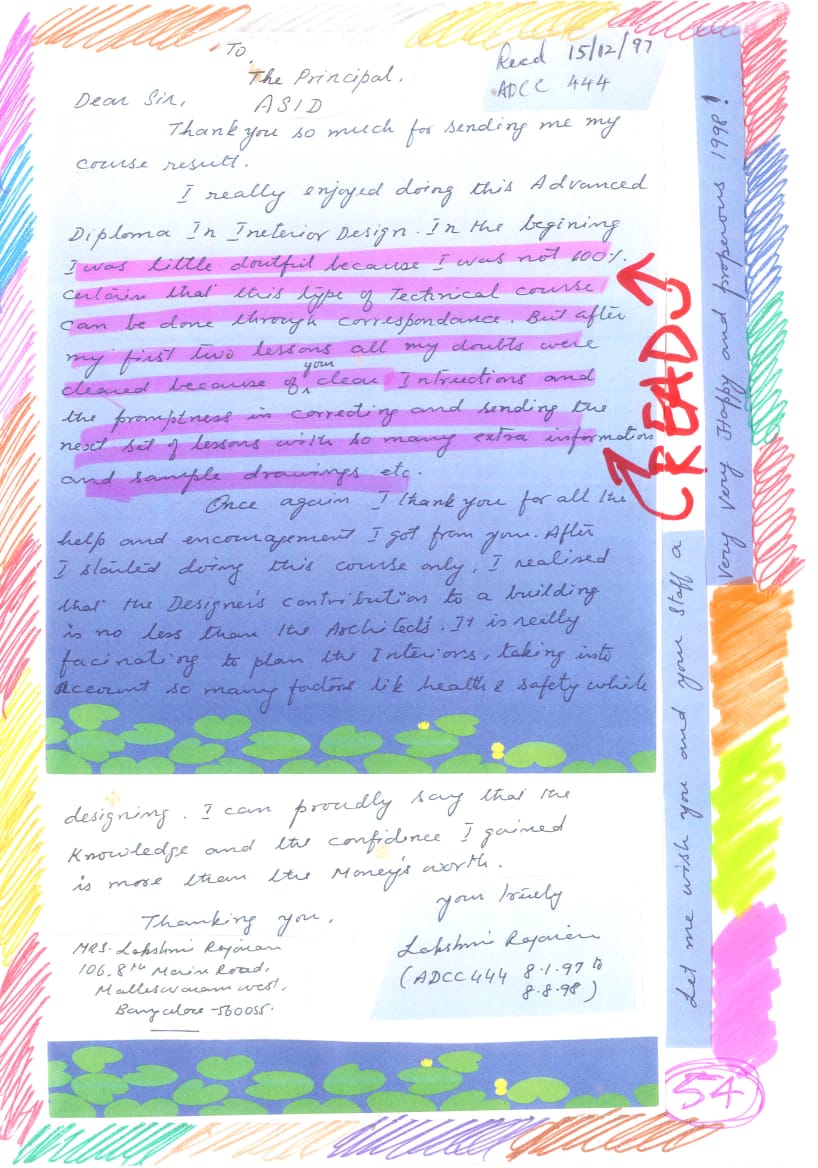 To
The Principal.
ASID
Recd 15/12/97
ADCC 444
Dear Sir,
Thank you so much for sending me my
course result.
I really enjoyed doing this Advanced
Diploma In Ineterior Design. In the begining
I was little doutful because I was not 100%.
certain that this type of Technical course
can be done through correspondance. But after
my first two lessons all my doubts were
cleared because of your clear Intructions and
the promptness in correcting and sending the
next set of lessons with so many extra information
and sample drawings etc.
Once again I thank you for all the
help and encouragement I got from you. After
I started doing this course only, I realised
that the Designer's contribution to a building
is no less than the Architect's. It is really
facinating to plan the Interiors, taking into
account so many factors lik health & safety while
designing. I can proudly say that the
Knowledge and the confidence I gained
is more than the Money's worth.
Thanking you,
your truely
Lakshmi Rajaram
(ADCC444 8.1.97 to
8.8.98)
MRS. Lakshmi Rajaram
106, 8th Main Road,
Malleswaram west,
Bangalore-560055.
READ
Let me wish you and your staff a
Very Very Happy and properous 1998!
54